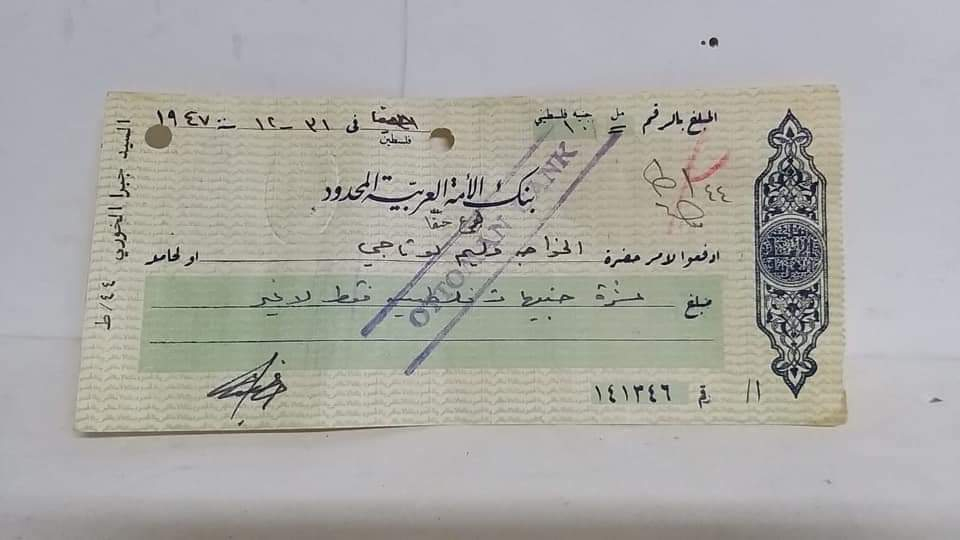 المبلغ بالرقم مل جنيه فلسطيني
١٠
في ٣١ - ١٢ سنة ١٩٤٧
فلسطين
بنك الأمة العربية المحدود
فرع حيفا
ادفعوا لأمر حضرة الخواجه وليم او لحامله
مبلغ عشرة جنيهات فلسطينية فقط لا غير
OTTOMAN BANK
رقم ١٤١٣٤٦
السيد جبرا الخوري
ط/٤٤